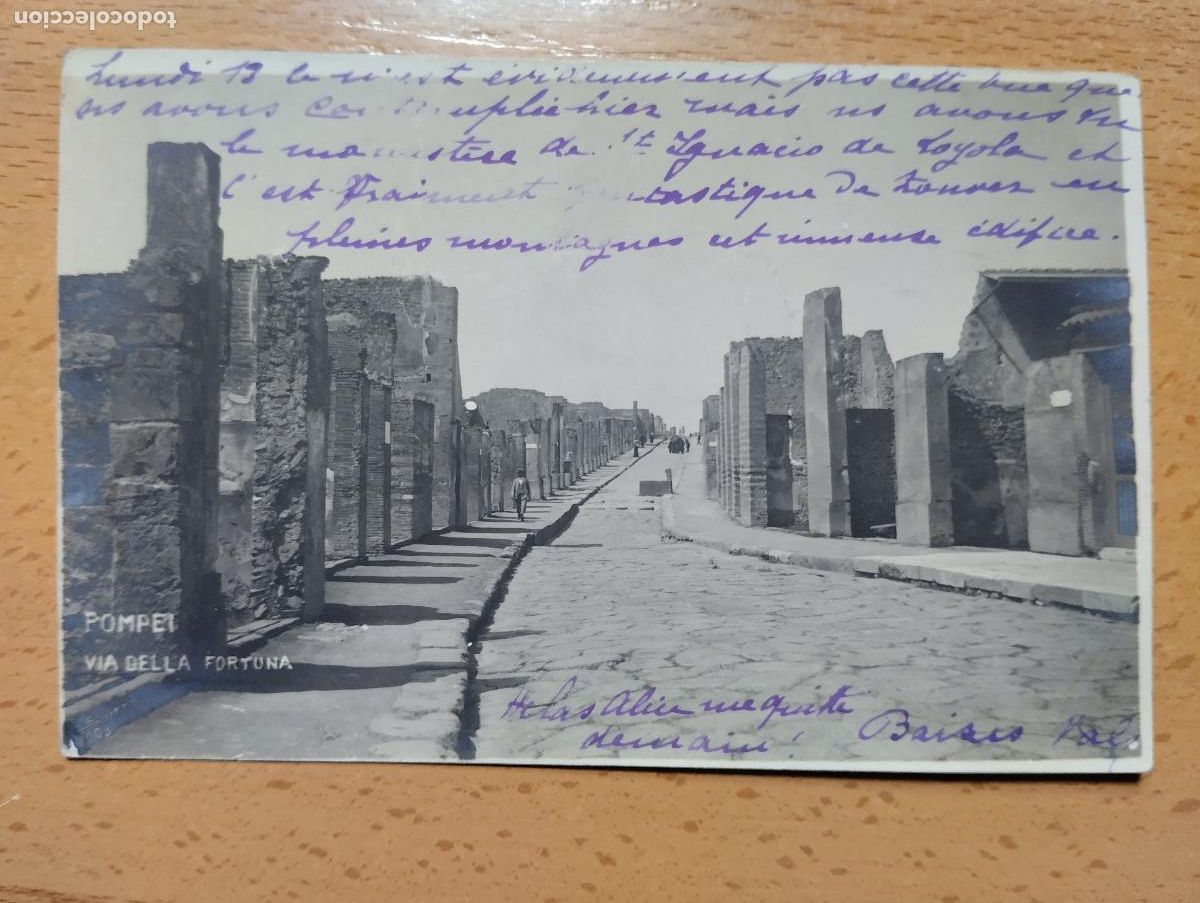 todocoleccion
Lundi 13 Ce n'est évidemment pas cette vue que
ns avons contemplié hier mais ns avons vu
le monastère de St Ignacio de Loyola et
c'est vraiment fantastique de trouver en
pleines montagnes cet immense édifice.
POMPEI
VIA DELLA FORTUNA
Helas Alice me quitte
demain!
Baisers